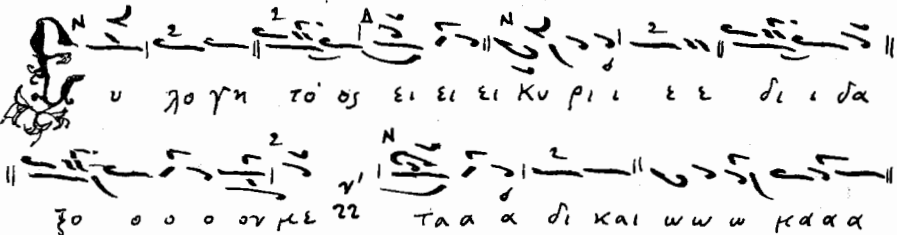 Ευ λο γη το ος ει ει ει Κυ ρι ι ε ε δι ι δα
ξο ο ο ο ον με τα α α δι και ω ω ω μα α α